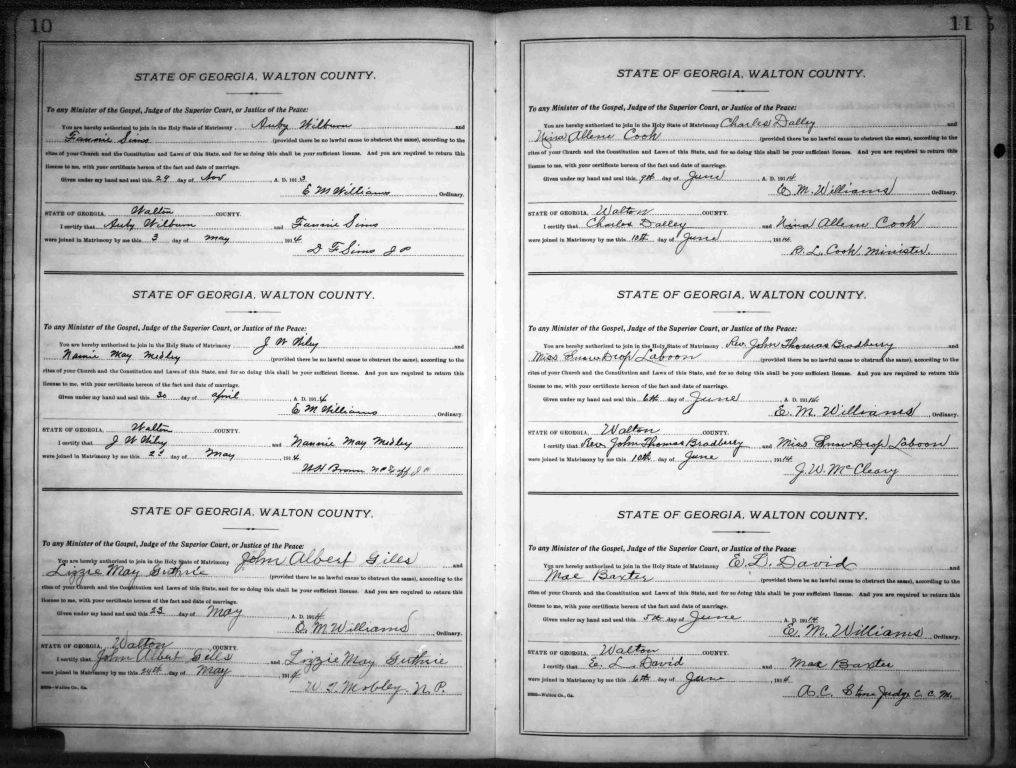 10
STATE OF GEORGIA, WALTON COUNTY.
To any Minister of the Gospel, Judge of the Superior Court, or Justice of the Peace:
You are hereby authorized to join in the Holy State of Matrimony Auby Wilburn and
Fannie Sims (provided there be no lawful cause to obstruct the same), according to the
rites of your Church and the Constitution and Laws of this State, and for so doing this shall be your sufficient license. And you are required to return this
license to me, with your certificate hereon of the fact and date of marriage.
Given under my hand and seal this 29 day of Nov A. D. 1913
E M Williams Ordinary.
STATE OF GEORGIA, Walton COUNTY.
I certify that Auby Wilburn and Fannie Sims
were joined in Matrimony by me this 3 day of May 1914
D F Sims J P
STATE OF GEORGIA, WALTON COUNTY.
To any Minister of the Gospel, Judge of the Superior Court, or Justice of the Peace:
You are hereby authorized to join in the Holy State of Matrimony J W and
Nannie May Medley (provided there be no lawful cause to obstruct the same), according to the
rites of your Church and the Constitution and Laws of this State, and for so doing this shall be your sufficient license. And you are required to return this
license to me, with your certificate hereon of the fact and date of marriage.
Given under my hand and seal this 30 day of April A. D. 1914
E M Williams Ordinary.
STATE OF GEORGIA, Walton COUNTY.
I certify that J W and Nannie May Medley
were joined in Matrimony by me this day of May 1914
Brown J P
STATE OF GEORGIA, WALTON COUNTY.
To any Minister of the Gospel, Judge of the Superior Court, or Justice of the Peace:
You are hereby authorized to join in the Holy State of Matrimony John Albert Giles and
Lizzie May Guthrie (provided there be no lawful cause to obstruct the same), according to the
rites of your Church and the Constitution and Laws of this State, and for so doing this shall be your sufficient license. And you are required to return this
license to me, with your certificate hereon of the fact and date of marriage.
Given under my hand and seal this 23 day of May A. D. 1914
E. M Williams Ordinary.
STATE OF GEORGIA, Walton COUNTY.
I certify that John Albert Gills and Lizzie May Guthrie
were joined in Matrimony by me this 24th day of May 1914
W T Mobley, N. P.
11
STATE OF GEORGIA, WALTON COUNTY.
To any Minister of the Gospel, Judge of the Superior Court, or Justice of the Peace:
You are hereby authorized to join in the Holy State of Matrimony Charles Dalley and
Nina Allene Cook (provided there be no lawful cause to obstruct the same), according to the
rites of your Church and the Constitution and Laws of this State, and for so doing this shall be your sufficient license. And you are required to return this
license to me, with your certificate hereon of the fact and date of marriage.
Given under my hand and seal this 9th day of June A. D. 1914
E. M. Williams Ordinary.
STATE OF GEORGIA, Walton COUNTY.
I certify that Charles Dalley and Nina Allene Cook
were joined in Matrimony by me this 10th day of June 1914
R. L. Cook, Minister.
STATE OF GEORGIA, WALTON COUNTY.
To any Minister of the Gospel, Judge of the Superior Court, or Justice of the Peace:
You are hereby authorized to join in the Holy State of Matrimony Rev. John Thomas Bradbury and
Miss Snow Drop Laboon (provided there be no lawful cause to obstruct the same), according to the
rites of your Church and the Constitution and Laws of this State, and for so doing this shall be your sufficient license. And you are required to return this
license to me, with your certificate hereon of the fact and date of marriage.
Given under my hand and seal this 6th day of June A. D. 1914
E. M. Williams Ordinary.
STATE OF GEORGIA, Walton COUNTY.
I certify that Rev. John Thomas Bradberry and Miss Snow Drop Laboon
were joined in Matrimony by me this 10th day of June 1914
J. W. McCleary
STATE OF GEORGIA, WALTON COUNTY.
To any Minister of the Gospel, Judge of the Superior Court, or Justice of the Peace:
You are hereby authorized to join in the Holy State of Matrimony E. L. David and
Mae Baxter (provided there be no lawful cause to obstruct the same), according to the
rites of your Church and the Constitution and Laws of this State, and for so doing this shall be your sufficient license. And you are required to return this
license to me, with your certificate hereon of the fact and date of marriage.
Given under my hand and seal this 5th day of June A. D. 1914
E. M. Williams Ordinary.
STATE OF GEORGIA, Walton COUNTY.
I certify that E. L. David and Mae Baxter
were joined in Matrimony by me this 6th day of June 1914
A. C. Stone Judge C. C. M.